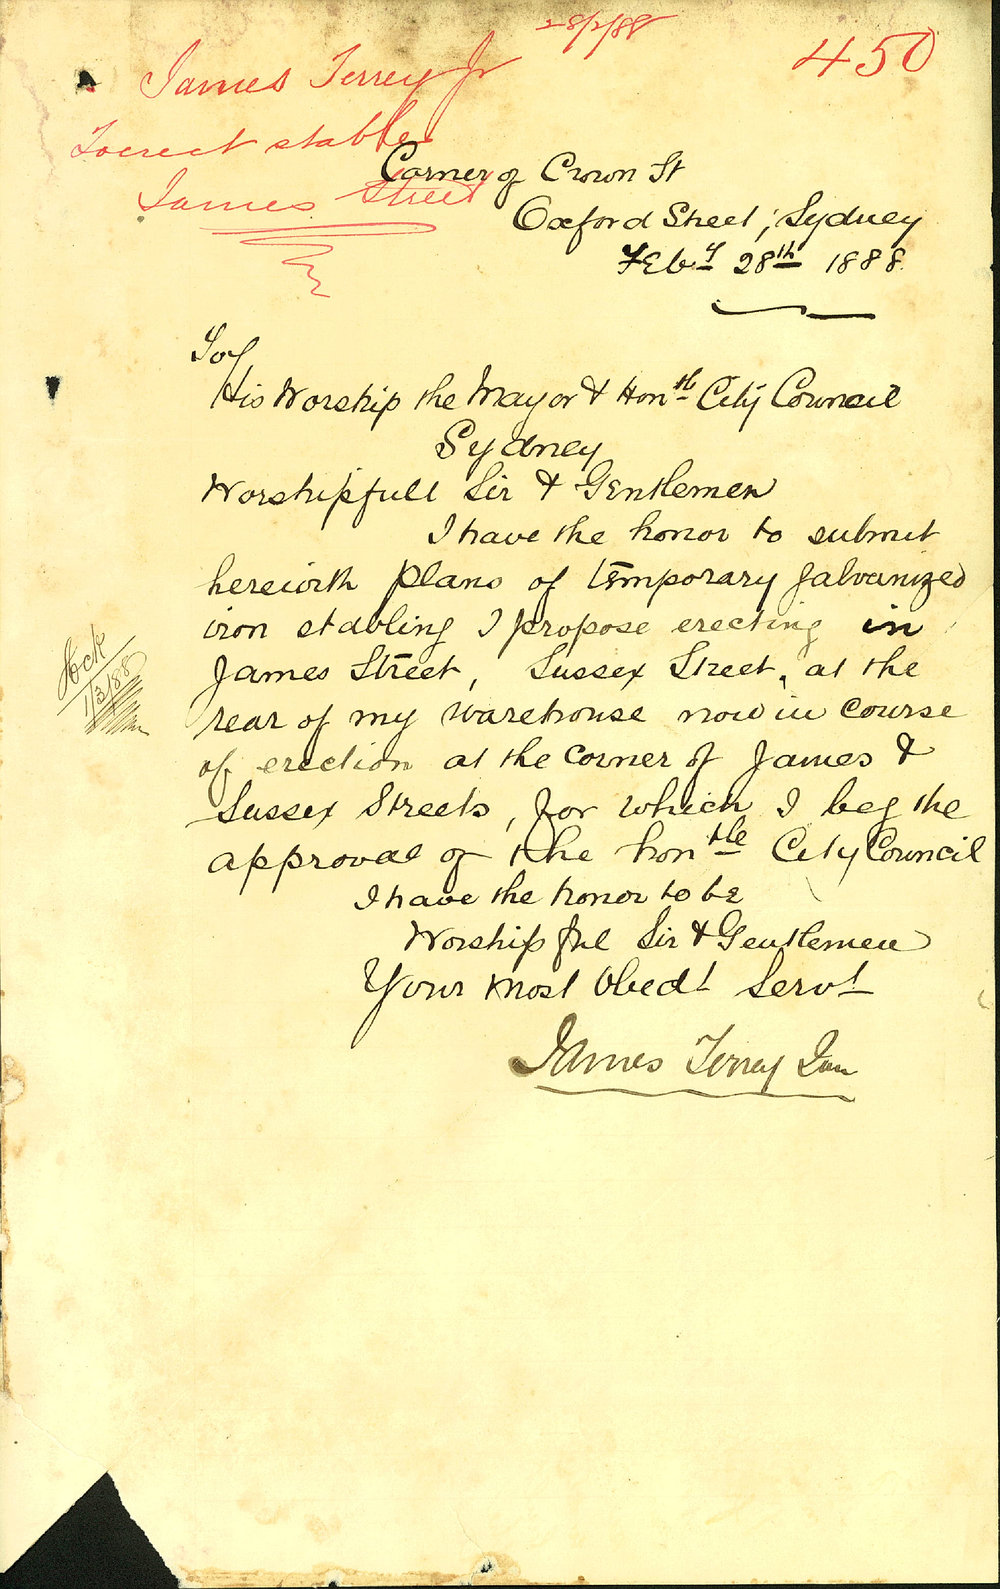 28/2/88
450
James Terrey Jr
To erect stables
James Street
Corner of Crown St
Oxford Street, Sydney
Feby 28th 1888
To/
His Worship the Mayor & Honle City Council
Sydney
Worshipfull Sir & Gentlemen
I have the honor to submit
herewith plans of temporary galvanized
iron stabling I propose erecting in
James Street, Sussex Street, at the
rear of my warehouse now in course
of erection at the corner of James &
Sussex Streets, for which I beg the
approval of the honble City Council
I have the honor to be
Worshipful Sir & Gentlemen
Your most Obedt Servt
James Terrey Jun
Ack
1/3/88